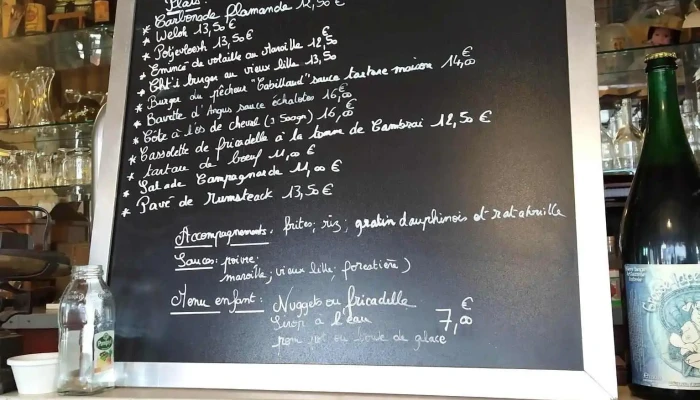 Plats:
* Carbonade flamande 12,50 €
* Welsh 13,50 €
* Potjevleesh 13,50 €
* Emincé de volaille au Maroille 12,50 €
* Cht'i burger au vieux lille 13,50
* Burger du pêcheur "Cabillaud" sauce tartare maison 14,00 €
* Bavette d'Angus sauce échalotes 16,00 €
* Côte à l'os de cheval (± 500gr) 16,00 €
* Cassolette de fricadelle à la tomme de Cambrai 12,50 €
* tartare de boeuf 11,00 €
* Salade Campagnarde 11,00 €
* Pavé de Rumsteack 13,50 €
Accompagnements: frites; riz; gratin dauphinois et ratatouille
Sauces: poivre;
maroille; vieux lille; forestière)
Menu enfant: Nuggets ou fricadelle
Sirop à l'eau 7,00 €
pom'pot ou boule de glace